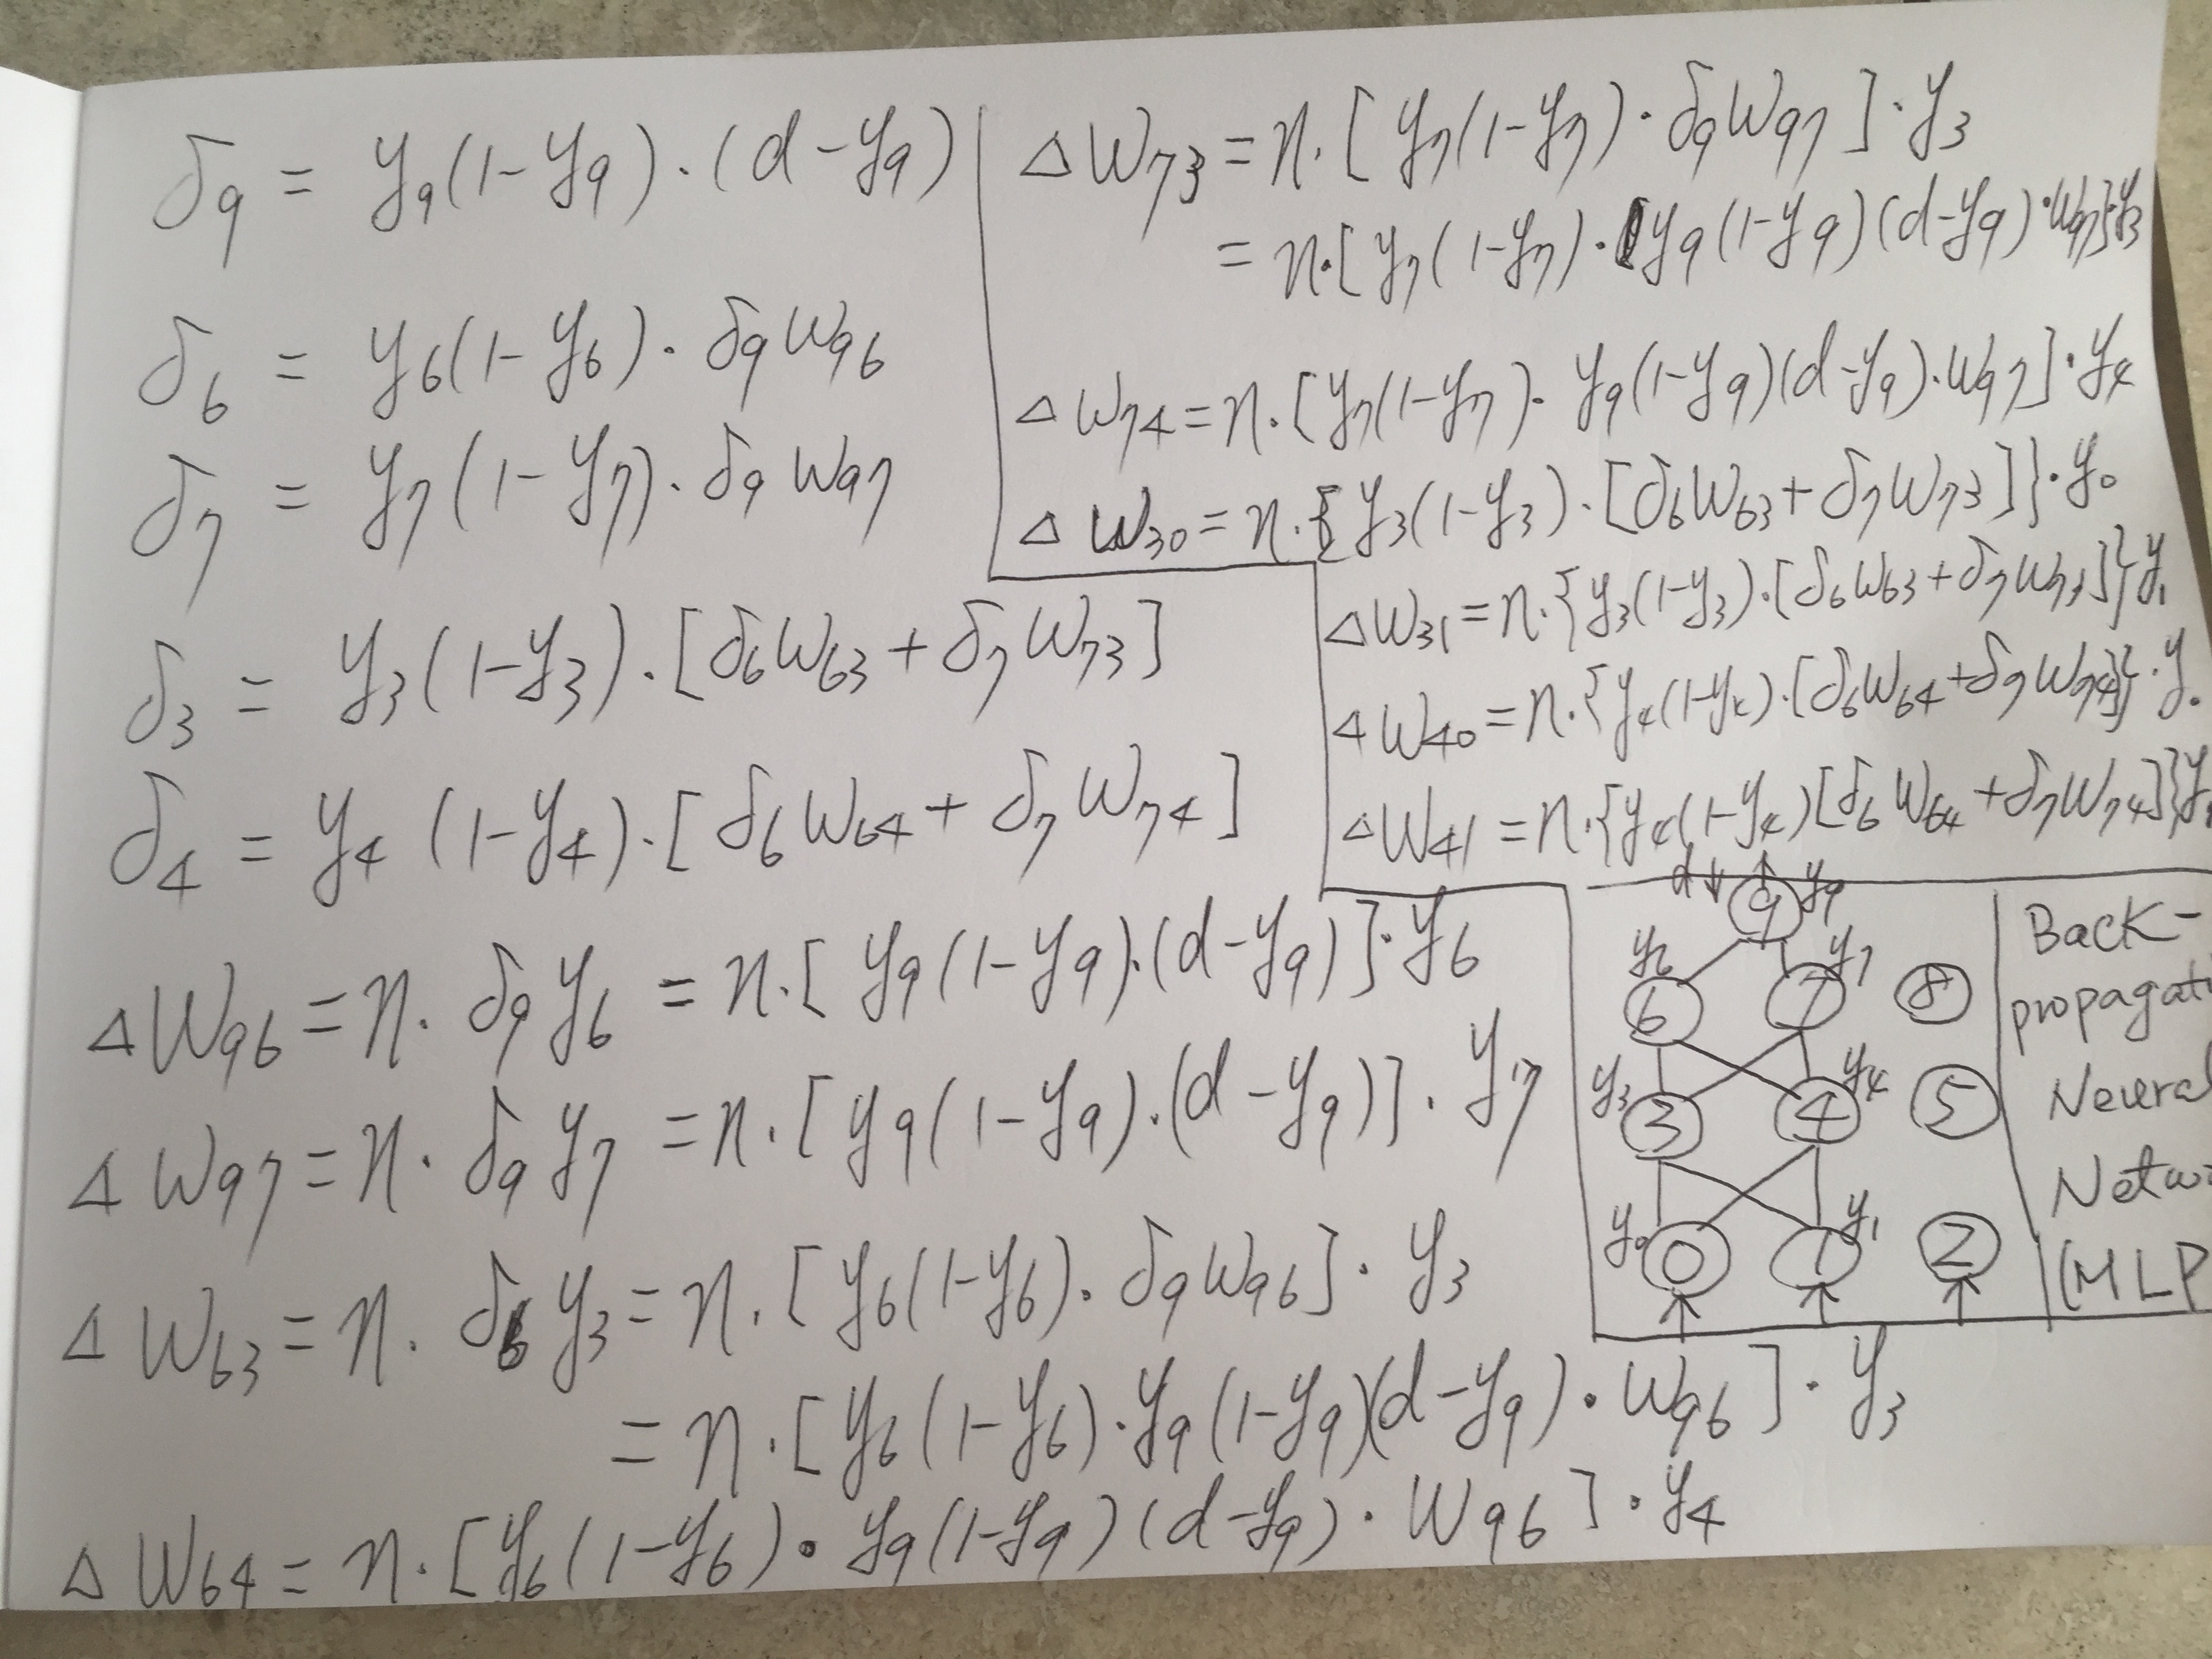 δ9 = y9(1-y9)·(d-y9)
δ6 = y6(1-y6)·δ9w96
δ7 = y7(1-y7)·δ9w97
δ3 = y3(1-y3)·[δ6w63+δ7w73]
δ4 = y4(1-y4)·[δ6w64+δ7w74]
ΔW96 = η·δ9y6 = η·[y9(1-y9)·(d-y9)]·y6
Δw97 = η·δ9y7 = η·[y9(1-y9)·(d-y9)]·y7
Δw63 = η·δ6y3 = η·[y6(1-y6)·δ9w96]·y3
= η·[y6(1-y6)·y9(1-y9)(d-y9)·w96]·y3
ΔW64 = η·[y6(1-y6)·y9(1-y9)(d-y9)·W96]·y4
ΔW73 = η·[y7(1-y7)·δ9w97]·y3
= η·[y7(1-y7)·y9(1-y9)(d-y9)·w97]·y3
ΔW74 = η·[y7(1-y7)·y9(1-y9)(d-y9)·w97]·y4
Δw30 = η·{y3(1-y3)·[δ6w63+δ7w73]}·y0
Δw31 = η·{y3(1-y3)·[δ6w63+δ7w73]}y1
Δw40 = η·{y4(1-y4)·[δ6w64+δ7w74]}·y0
ΔW41 = η·{y4(1-y4)[δ6W64+δ7W74]}y1
9 y9
y6 6 7 y7 8
y3 3 4 y4 5
y0 0 1 y1 2
Back-
propagati
Neural
Netw
(MLP